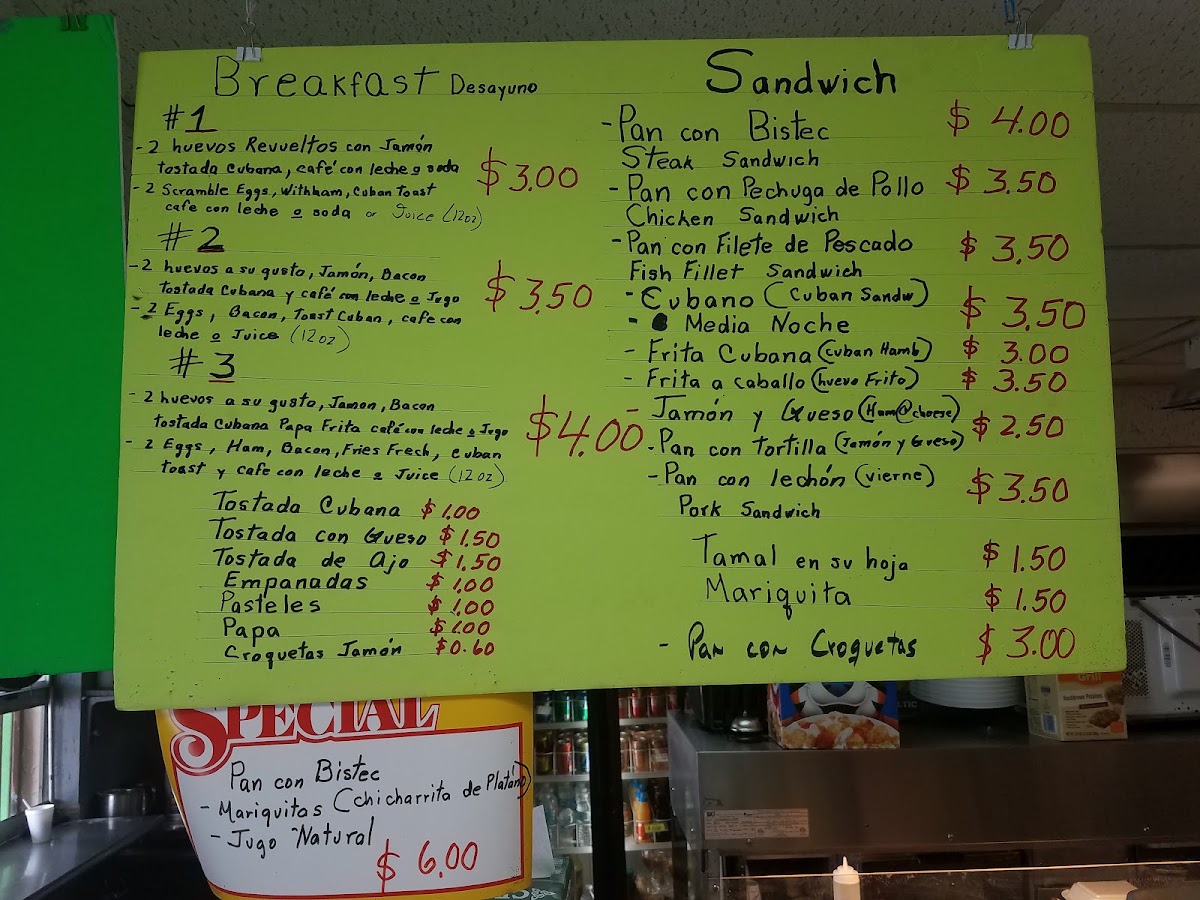 Breakfast Desayuno
#1
- 2 huevos Revueltos con Jamón
tostada Cubana, café con leche o soda
$3.00
- 2 Scramble Eggs, Withham, Cuban Toast
cafe con leche o soda or Juice (12oz)
#2
- 2 huevos a su gusto, Jamón, Bacon
tostada Cubana y café con leche o Jugo
$3.50
- 2 Eggs, Bacon, Toast Cuban, cafe con
leche o Juice (12oz)
#3
- 2 huevos a su gusto, Jamon, Bacon
tostada Cubana Papa Frita café con leche o Jugo
$4.00
- 2 Eggs, Ham, Bacon, Fries Frech, Cuban
toast y cafe con leche o Juice (12oz)
Tostada Cubana $1.00
Tostada con Queso $1.50
Tostada de Ajo $1.50
Empanadas $1.00
Pasteles $1.00
Papa $1.00
Croquetas Jamón $0.60
Sandwich
- Pan con Bistec $4.00
Steak Sandwich
- Pan con Pechuga de Pollo $3.50
Chicken Sandwich
- Pan con Filete de Pescado $3.50
Fish Fillet Sandwich
- Cubano (Cuban Sandw)
- Media Noche $3.50
- Frita Cubana (Cuban Hamb) $3.00
- Frita a caballo (huevo Frito) $3.50
- Jamón y Queso (Ham@cheese)
- Pan con tortilla (Jamón y Queso) $2.50
- Pan con lechón (vierne) $3.50
Pork Sandwich
Tamal en su hoja $1.50
Mariquita $1.50
- Pan con Croquetas $3.00
SPECIAL
Pan con Bistec
- Mariquitas (chicharrita de Platáno)
- Jugo Natural
$6.00
Grill